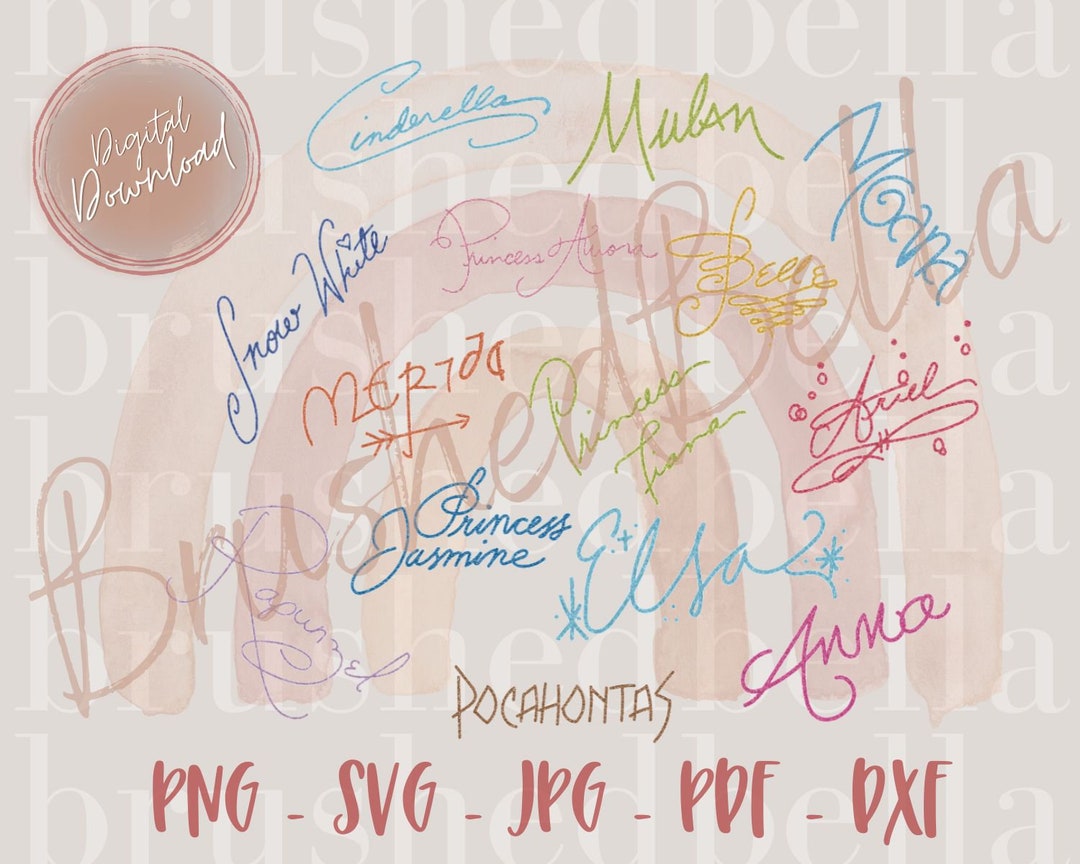 brushedbella
Digital
Download
Cinderella
Mulan
Moana
Snow White
Princess Aurora
Belle
MERIDA
Princess
Tiana
Ariel
BrushedBella
Princess
Jasmine
Elsa
Rapunzel
Anna
POCAHONTAS
PNG - SVG - JPG - PDF - DXF